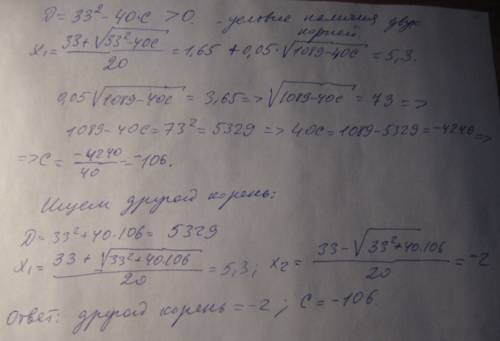 D = 33² - 40·C > 0. - условие наличия двух корней.
X₁ = (33 + √(33² - 40C)) / 20 = 1,65 + 0,05·√(1089 - 40C) = 5,3.
0,05√(1089 - 40C) = 3,65 => √(1089 - 40C) = 73 =>
1089 - 40C = 73² = 5329 => 40C = 1089 - 5329 = -4240 =>
=> C = -4240 / 40 = -106.
Ищем другой корень:
D = 33² + 40·106 = 5329
X₁ = (33 + √(33² + 40·106)) / 20 = 5,3; X₂ = (33 - √(33² + 40·106)) / 20 = -2
Ответ: другой корень = -2; C = -106